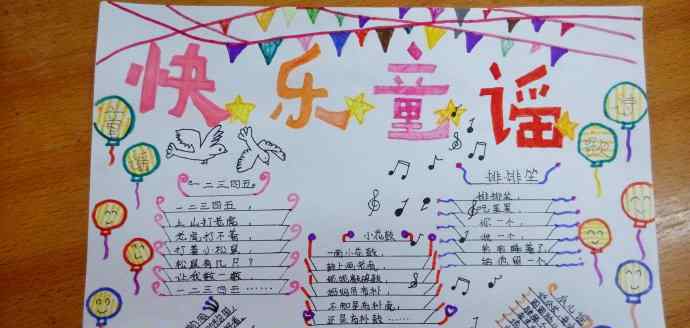 快乐童谣
童
谣
诗
歌
一二三四五
一二三四五，
上山打老虎，
老虎打不着，
打着小松鼠，
松鼠有几只？
让我数一数，
一二三四五……
小花鼓
一面小花鼓，
鼓上画老虎，
妈妈用布补，
不知是布补虎，
还是布补鼓……
排排坐
排排坐，
吃果果，
你一个，
我一个，
弟弟睡着了，
给他留一个。